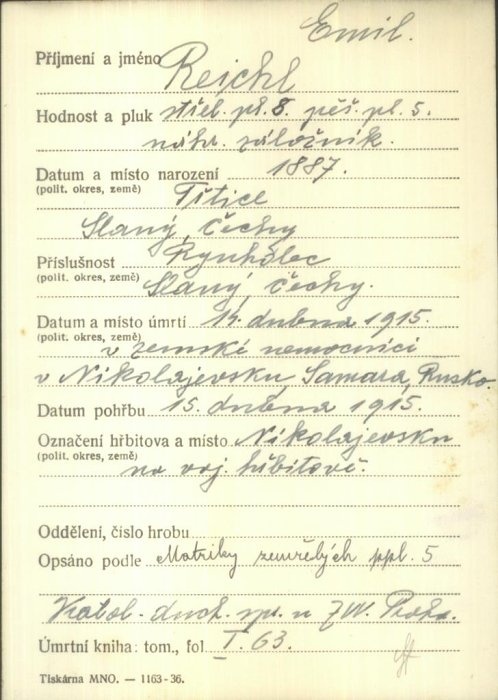 Emil.
Příjmení a jméno Rejchl
Hodnost a pluk střel. pl. 8. pěš. pl. 5.
náhr. záložník.
Datum a místo narození 1887.
(polit. okres, země) Třtice
Slaný, Čechy
Příslušnost Rynholec
(polit. okres, země) Slaný, Čechy.
Datum a místo úmrtí 14. dubna 1915.
(polit. okres, země) v zemské nemocnici
v Nikolajevsku, Samara, Rusko.
Datum pohřbu 15. dubna 1915.
Označení hřbitova a místo Nikolajevsku
(polit. okres, země) na voj. hřbitově.
Oddělení, číslo hrobu
Opsáno podle Matriky zemřelých ppl. 5
Katol. duch. spr. u ZVV. Praha.
Úmrtní kniha: tom., fol. I. 63.
Tiskárna MNO. — 1163-36.